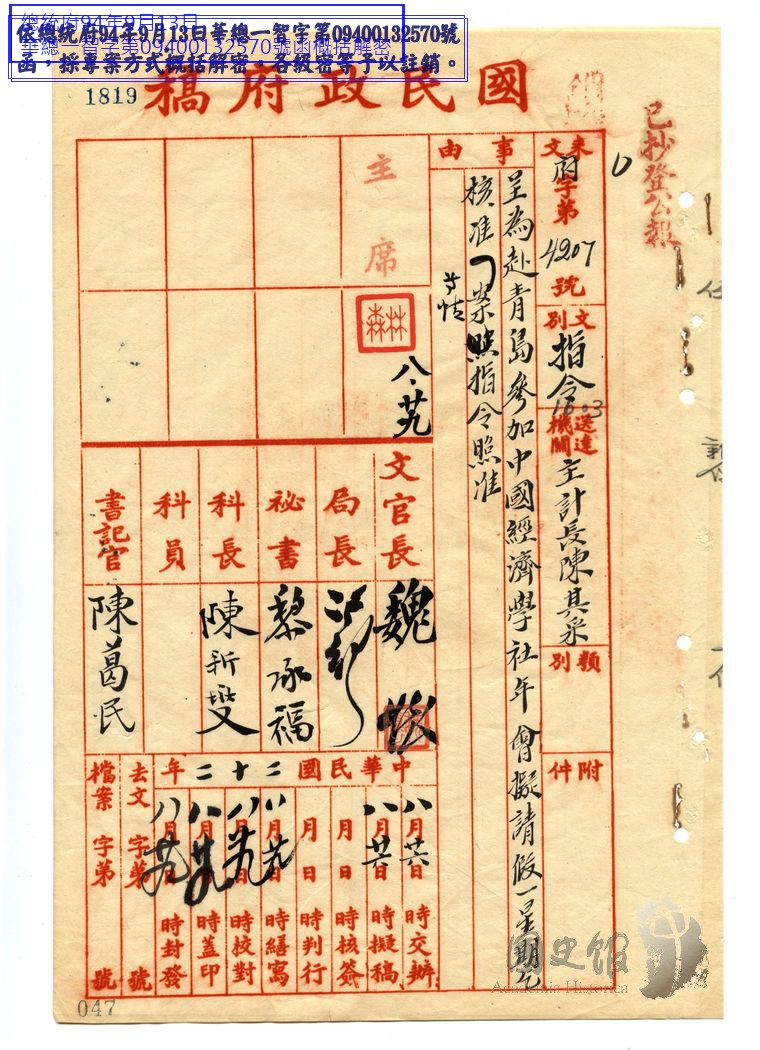 總統府94年9月13日
華總一智字第09400132570號函概括解密
依總統府94年9月13日華總一智字第09400132570號
函，採專案方式概括解密，各級密等予以註銷。
1819
國民政府稿
已抄登公報
來文
府字第4207號
文別
指令
1603
送達機關
主計長陳其采
類別
附件
事由
呈為赴青島參加中國經濟學社年會擬請假一星期乞
核准
案照指令照准
主席
八、廿九
文官長
魏懷
局長
祕書
黎承福
科長
陳新燮
科員
書記官
陳葛民
中華民國二十二年
八月廿六日 時交辦
八月廿六日 時擬稿
月 日 時核簽
月 日 時判行
八月廿九日 時繕寫
八月廿九日 時校對
八月廿九日 時蓋印
八月廿九日 時封發
去文 字第 號
檔案 字第 號
047
國史館
Academia Historica